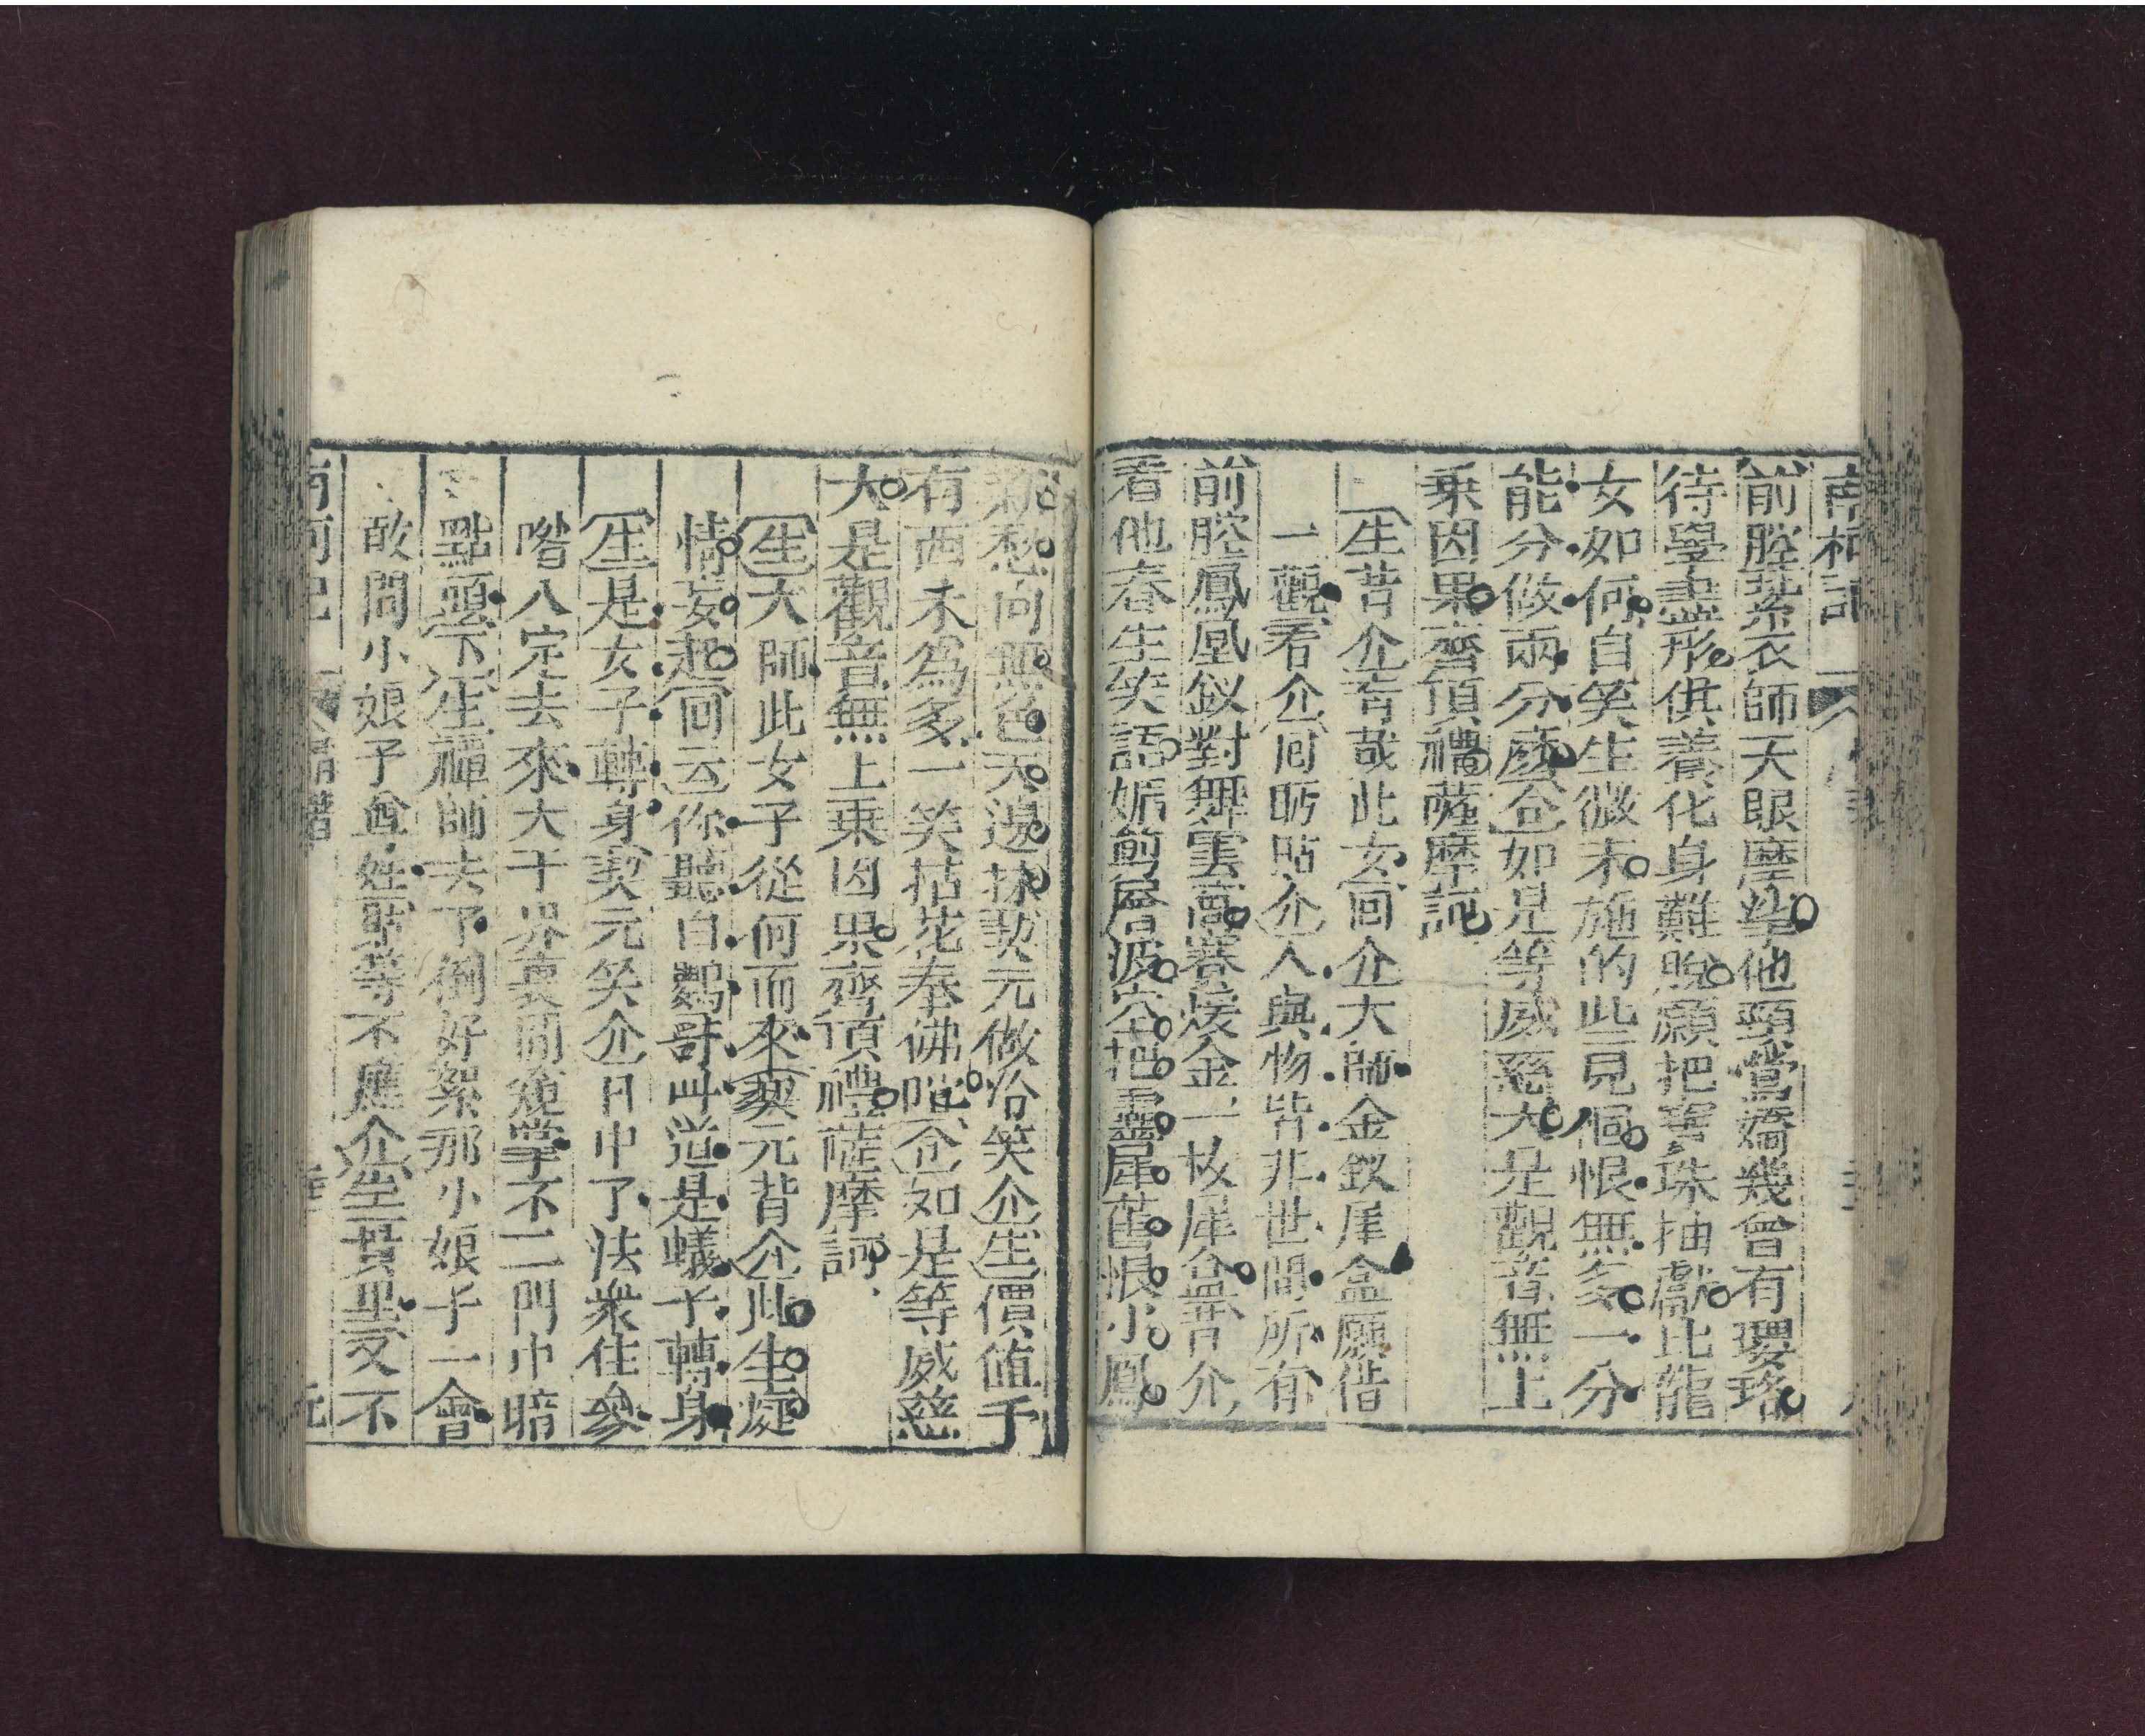 南柯記
前腔紫衣師天眼摩挲他頸鴬嬌幾曾有瓔珞
待學盡形供養化身難脫願把寳珠抽獻比龍
女如何自笑生微末施的些見個恨無多一分
能分做兩分麽合如是等威慈大是觀音無上
乗因果齊頂禮薩摩訶
生苦介音哉此女回介大師金釵犀盒願偕
一觀看介回眄眙介人與物皆非世間所有
前腔鳳凰釵對舞雲高賽煖金一枚犀盒背介
看他春生笑語媚剪層波穴把靈犀舊恨小鳳
新愁向無色天邊抹契元做冷笑介生價值千
有西未爲多一笑拈花奉佛㖿合如是等威慈
大是觀音無上乗因果齊頂禮薩摩訶
生大師此女子從何而來契元背介此生癡
情妄起回云你聽白鸚哥呌道是蟻子轉身
生是女子轉身契元笑介日中了法衆住參
喒入定去來大千界裏閒窺掌不二門中暗
點頭下生禪師去了倒好絮那小娘子一會
敢問小娘子尊姓耶等不應介生貫里又不
南柯記